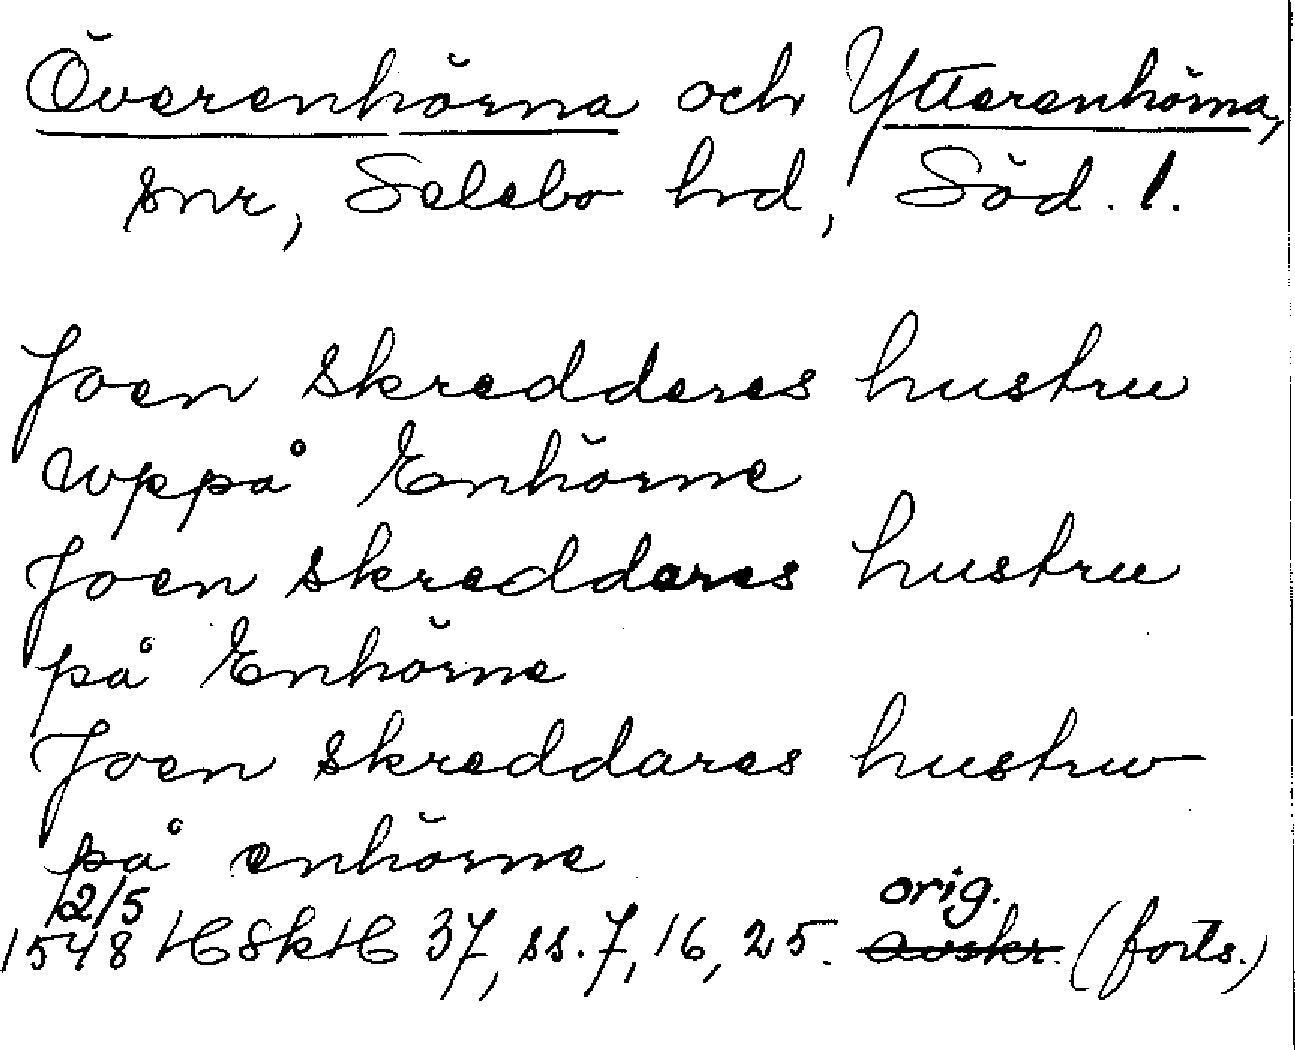 Överenhörna och Ytterenhörna,
snr, Selebo hd, Söd. l.
Joen skredderes hustru
wppå Enhörne
Joen skreddares hustru
på Enhörne
Joen skreddares hustrw
på enhörne
2/5 orig.
1548 HSkH 37, ss. 7, 16, 25. avskr. (forts.)